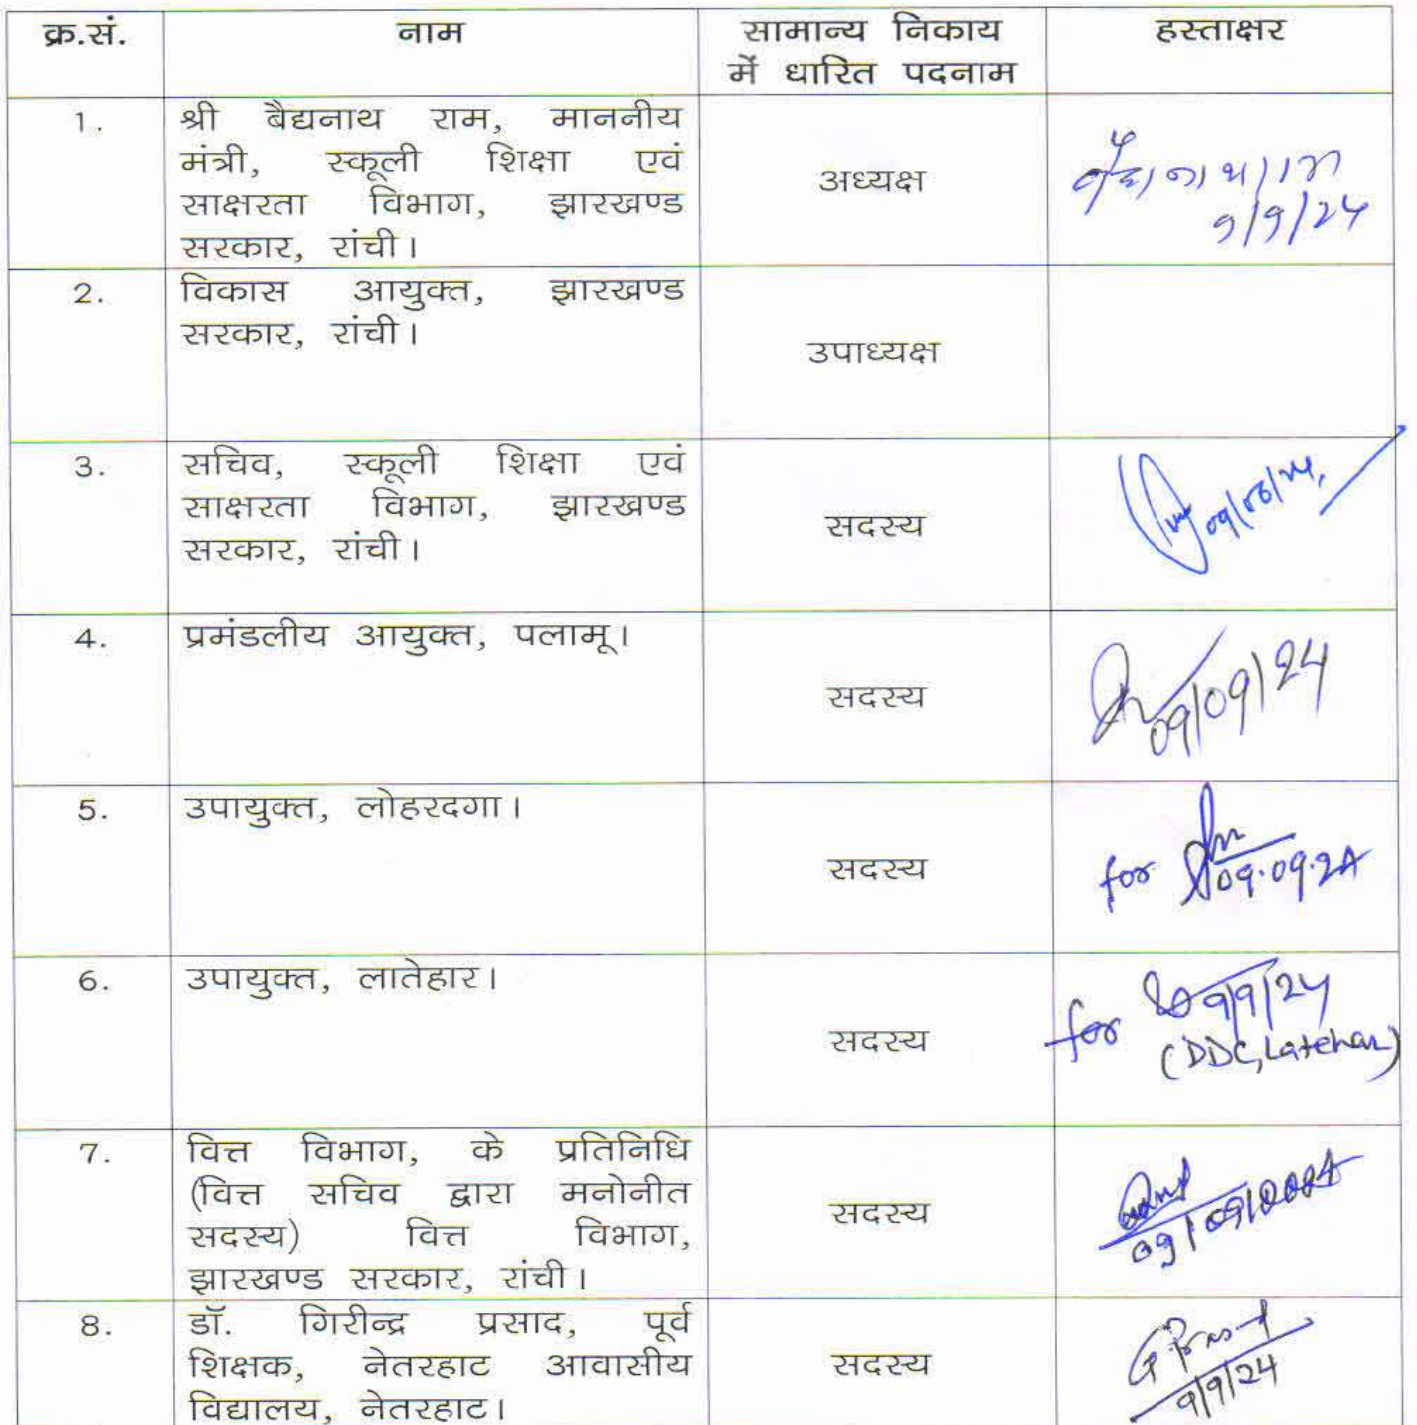 क्र.सं. नाम सामान्य निकाय हस्ताक्षर
में धारित पदनाम
1. श्री बैद्यनाथ राम, माननीय
मंत्री, स्कूली शिक्षा एवं
साक्षरता विभाग, झारखण्ड
सरकार, रांची।
अध्यक्ष
बैद्यनाथ राम
9/9/24
2. विकास आयुक्त, झारखण्ड
सरकार, रांची।
उपाध्यक्ष
3. सचिव, स्कूली शिक्षा एवं
साक्षरता विभाग, झारखण्ड
सरकार, रांची।
सदस्य
4. प्रमंडलीय आयुक्त, पलामू।
सदस्य
09/09/24
5. उपायुक्त, लोहरदगा।
सदस्य
for 09.09.24
6. उपायुक्त, लातेहार।
सदस्य
for 9/9/24
(DDC, Latehar)
7. वित्त विभाग, के प्रतिनिधि
(वित्त सचिव द्वारा मनोनीत
सदस्य) वित्त विभाग,
झारखण्ड सरकार, रांची।
सदस्य
09/09/2024
8. डॉ. गिरीन्द्र प्रसाद, पूर्व
शिक्षक, नेतरहाट आवासीय
विद्यालय, नेतरहाट।
सदस्य
9/9/24